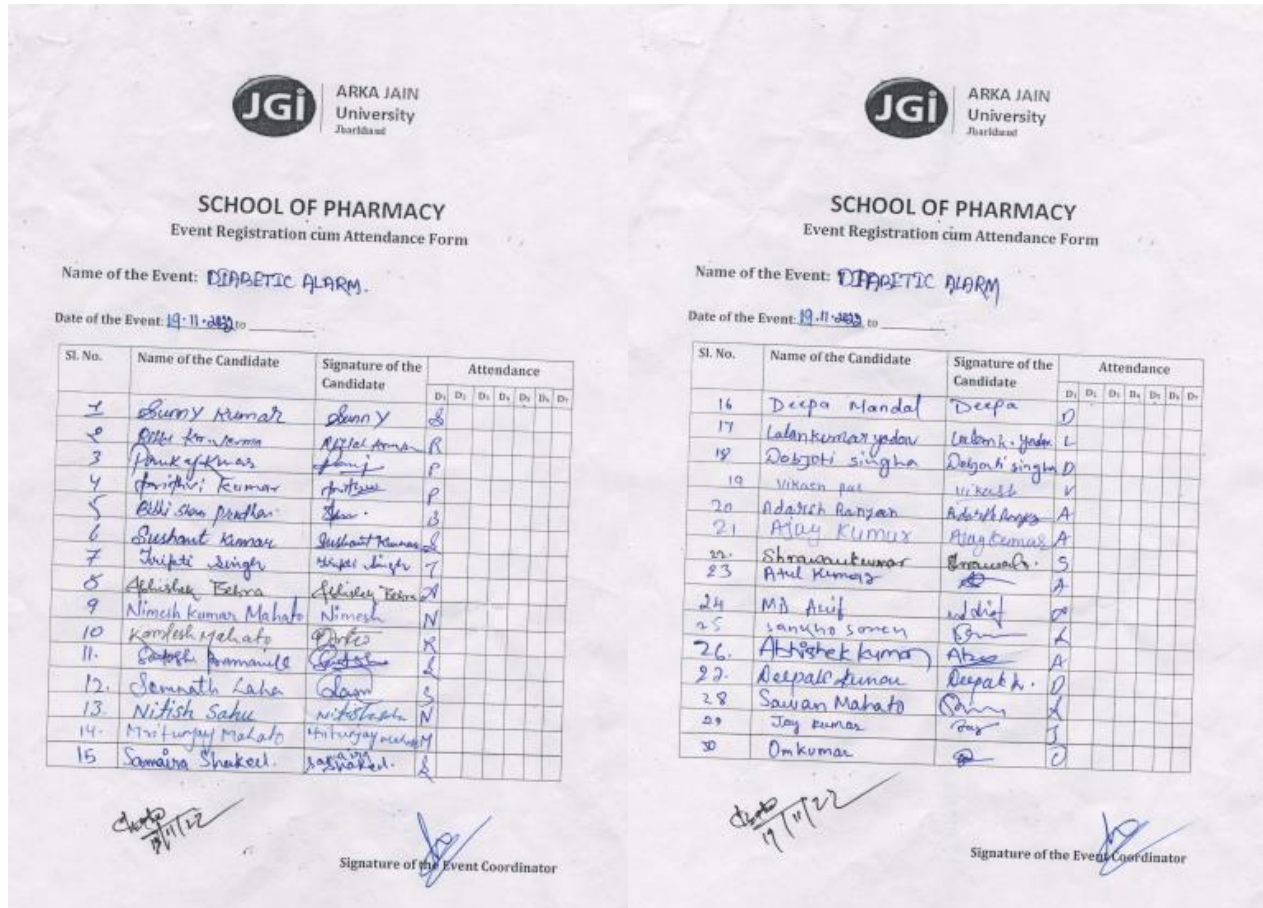 JGi
ARKA JAIN
University
Jharkhand
SCHOOL OF PHARMACY
Event Registration cum Attendance Form
Name of the Event: DIABETIC ALARM.
Date of the Event: 19.11.2022 to
Sl. No. Name of the Candidate Signature of the Candidate Attendance
D1 D2 D3 D4 D5 D6 D7
1 Sunny Kumar Sunny S
2 R
3 P
4 Kumar P
5 B
6 Sushant Kumar Sushant Kumar S
7 Singh Singh T
8 Abhishek Behra Abhishek Behra A
9 Nimesh Kumar Mahato Nimesh N
10 Kamlesh Mahato K
11. S
12. Somnath Laha S
13. Nitish Sahu N
14. Mritunjay Mahato Mritunjay M
15 Samaira Shakeel. Samaira Shakeel. S
19/11/22
Signature of the Event Coordinator
JGi
ARKA JAIN
University
Jharkhand
SCHOOL OF PHARMACY
Event Registration cum Attendance Form
Name of the Event: DIABETIC ALARM
Date of the Event: 19.11.2022 to
Sl. No. Name of the Candidate Signature of the Candidate Attendance
D1 D2 D3 D4 D5 D6 D7
16 Deepa Mandal Deepa D
17 Lalan kumar yadav Lalan k. yadav L
18 Debjoti singha Debjoti singha D
19 Vikash pal Vikash V
20 Adarsh Ranjan Adarsh Ranjan A
21 Ajay Kumar Ajay Kumar A
22. Shrawan kumar S
23 Atul Kumar A
24 MD Arif
25 Sankho Soren
26. Abhishek kumar A
27. Deepak kumar Deepak k. D
28 Sawan Mahato
29 Jay kumar Jay J
30 Omkumar O
19/11/22
Signature of the Event Coordinator